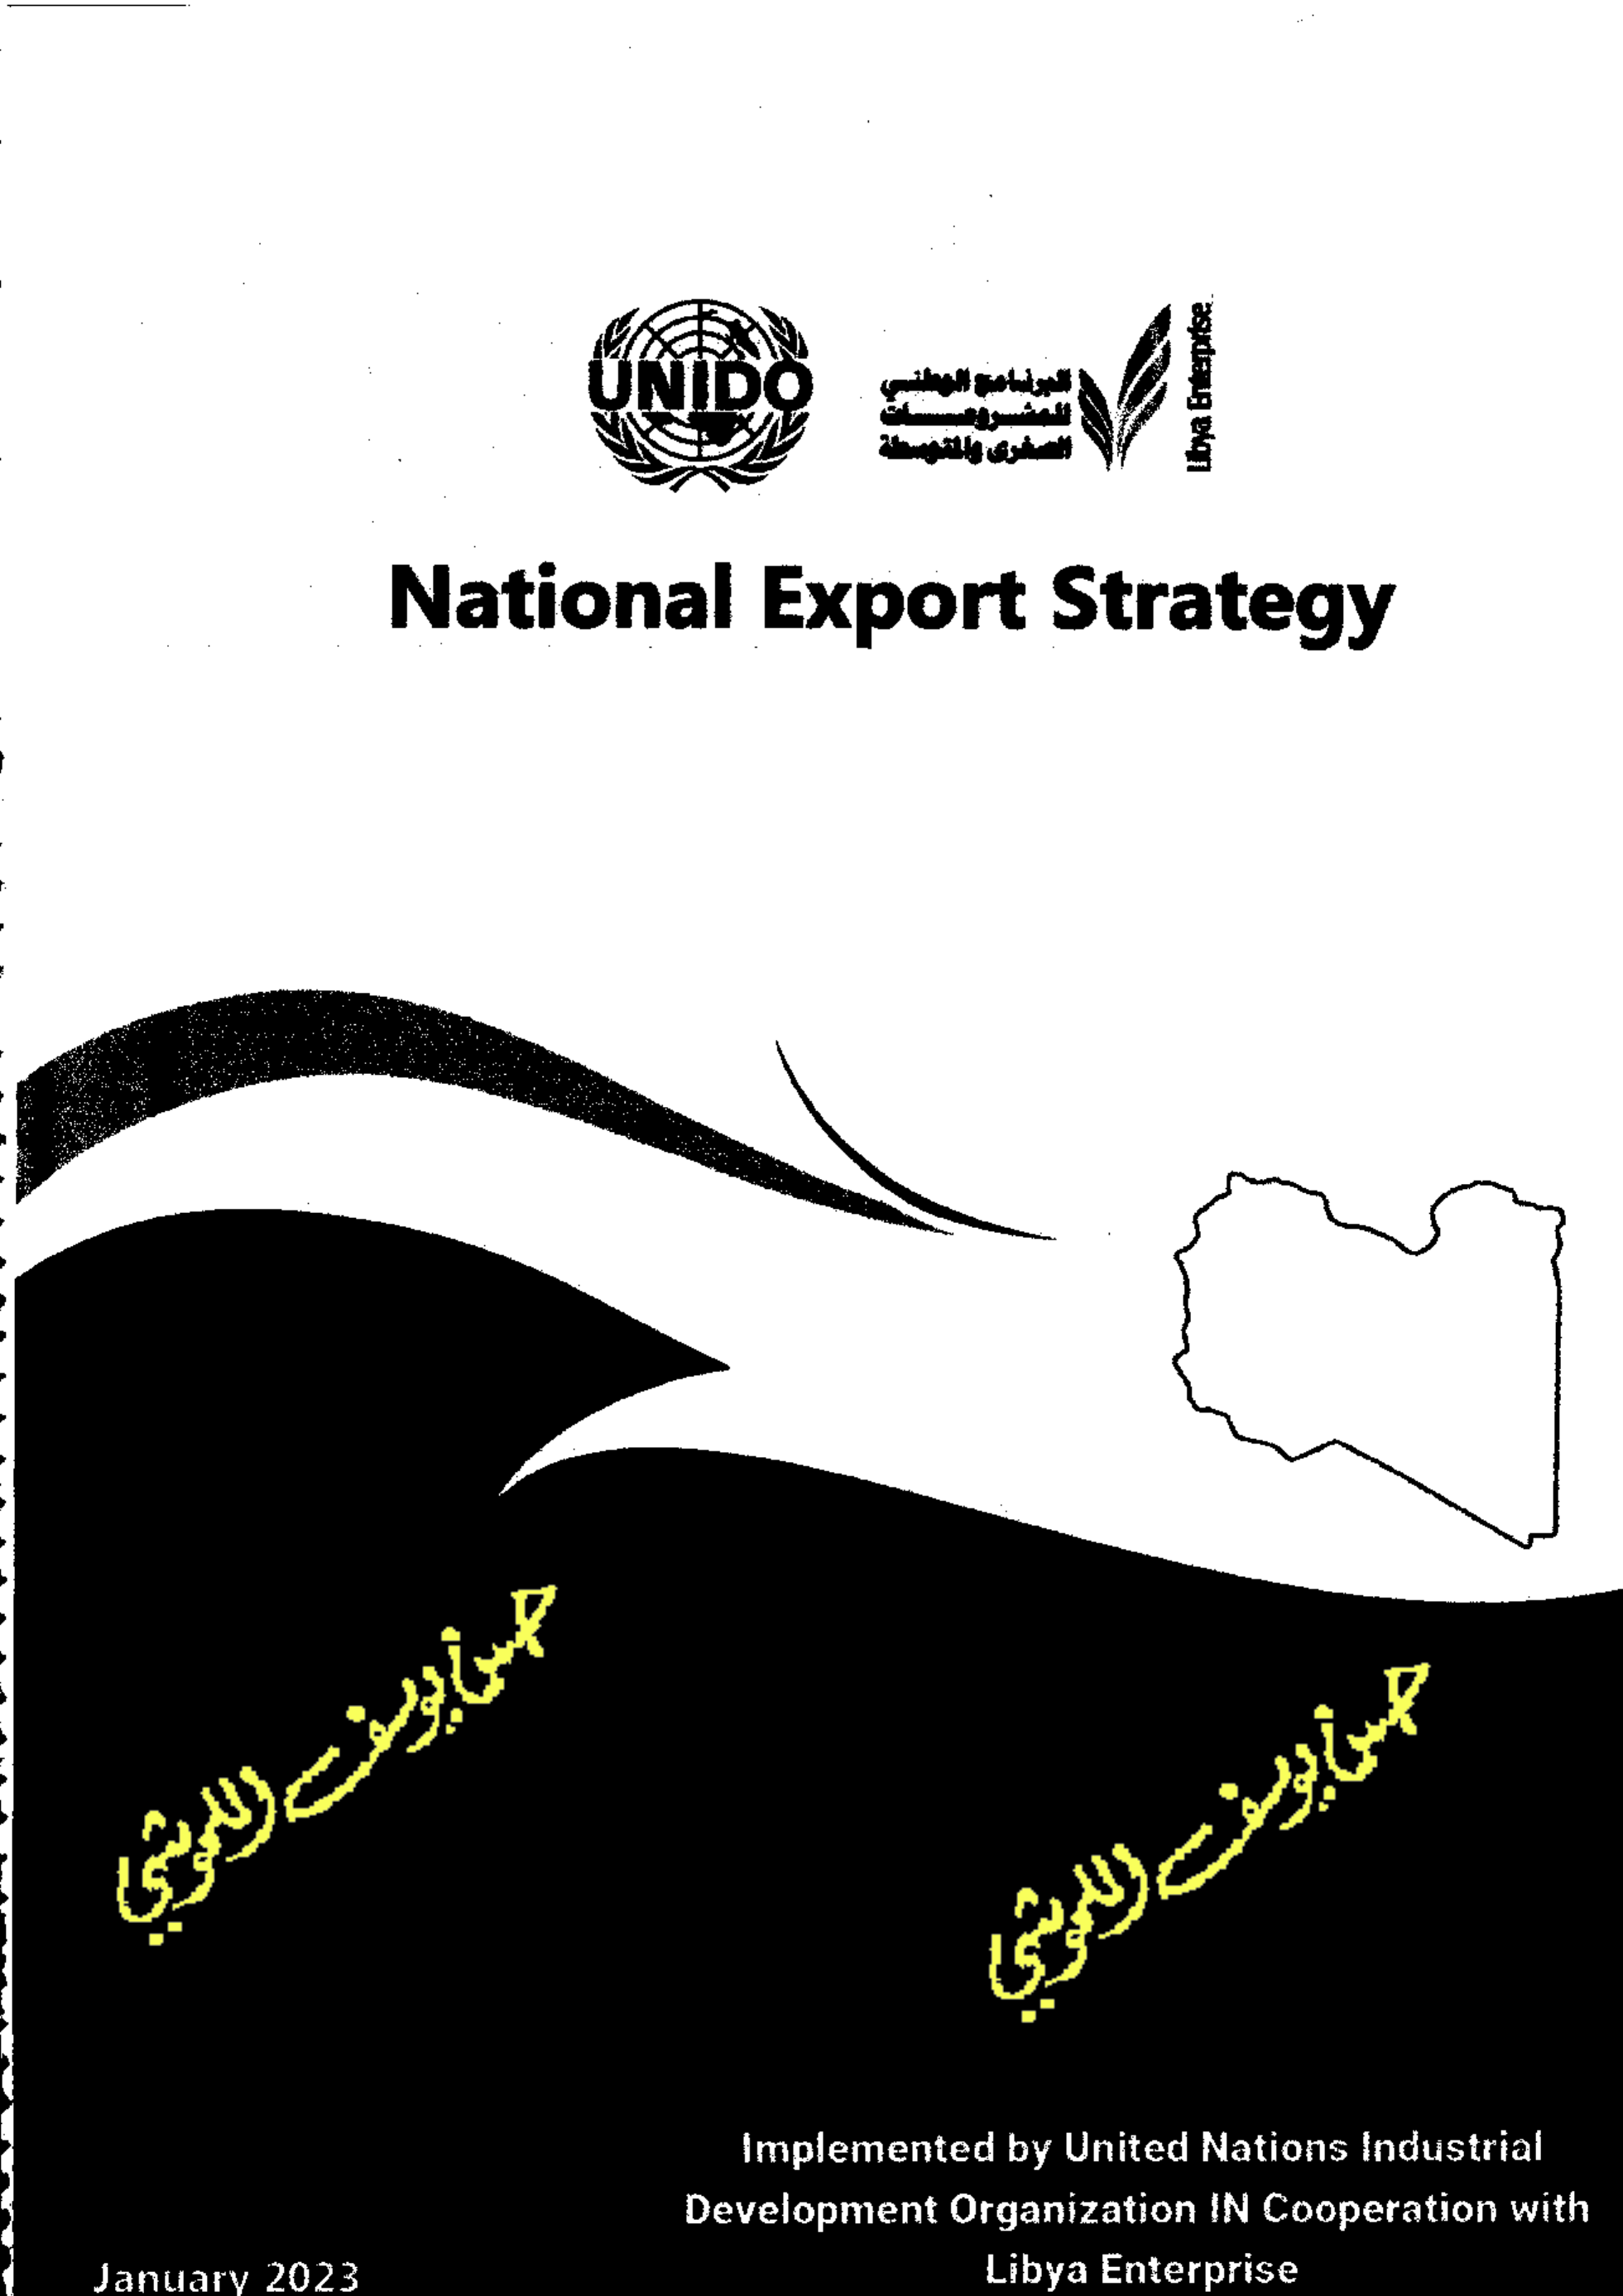 UNIDO
البرنامج الوطني
للمشروعات
الصغرى والمتوسطة
Libya Enterprise
National Export Strategy
Implemented by United Nations Industrial
Development Organization IN Cooperation with
Libya Enterprise
January 2023